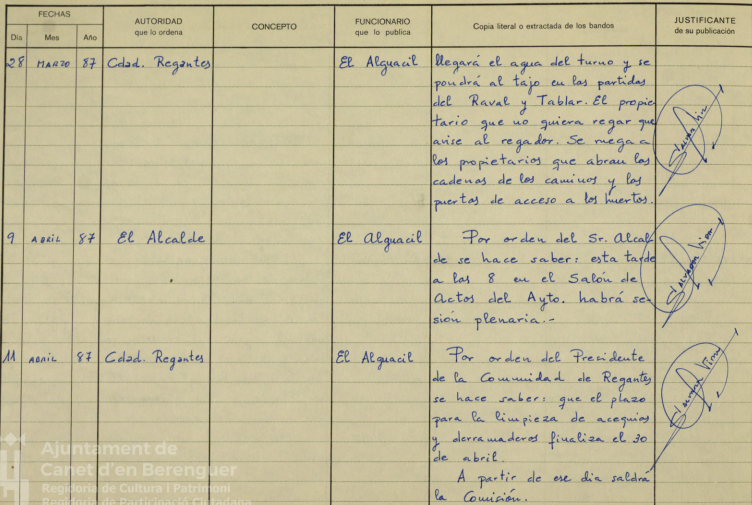 FECHAS
Día Mes Año
AUTORIDAD
que lo ordena
CONCEPTO
FUNCIONARIO
que lo publica
Copia literal o extractada de los bandos
JUSTIFICANTE
de su publicación
28 MARZO 87 Cdad. Regantes El Alguacil llegará el agua del turno y se
pondrá al tajo en las partidas
del Raval y Tablar. El propie
tario que no quiera regar que
avise al regador. Se ruega a
los propietarios que abran las
cadenas de los caminos y las
puertas de acceso a los huertos.
9 ABRIL 87 El Alcalde El Alguacil Por orden del Sr. Alcal
de se hace saber: esta tarde
a las 8 en el Salón de
Actos del Ayto. habrá se-
sión plenaria.-
11 ABRIL 87 Cdad. Regantes El Alguacil Por orden del Presidente
de la Comunidad de Regantes
se hace saber: que el plazo
para la limpieza de acequias
y derramaderos finaliza el 30
de abril.
A partir de ese dia saldrá
la Comisión.
Ajuntament de
Canet d'en Berenguer
Regidoria de Cultura i Patrimoni
Regidoria de Participació Ciutadana